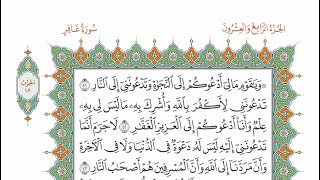 الجزء الرابع والعشرون
سورة غافر
وَيَٰقَوْمِ مَالِىٓ أَدْعُوكُمْ إِلَى ٱلنَّجَوٰةِ وَتَدْعُونَنِىٓ إِلَى ٱلنَّارِ ٤١
تَدْعُونَنِى لِأَكْفُرَ بِٱللَّهِ وَأُشْرِكَ بِهِۦ مَا لَيْسَ لِى بِهِۦ
عِلْمٌ وَأَنَا۠ أَدْعُوكُمْ إِلَى ٱلْعَزِيزِ ٱلْغَفَّٰرِ ٤٢ لَا جَرَمَ أَنَّمَا
تَدْعُونَنِىٓ إِلَيْهِ لَيْسَ لَهُۥ دَعْوَةٌ فِى ٱلدُّنْيَا وَلَا فِى ٱلْءَاخِرَةِ
وَأَنَّ مَرَدَّنَآ إِلَى ٱللَّهِ وَأَنَّ ٱلْمُسْرِفِينَ هُمْ أَصْحَٰبُ ٱلنَّارِ
الحزب
٤٨